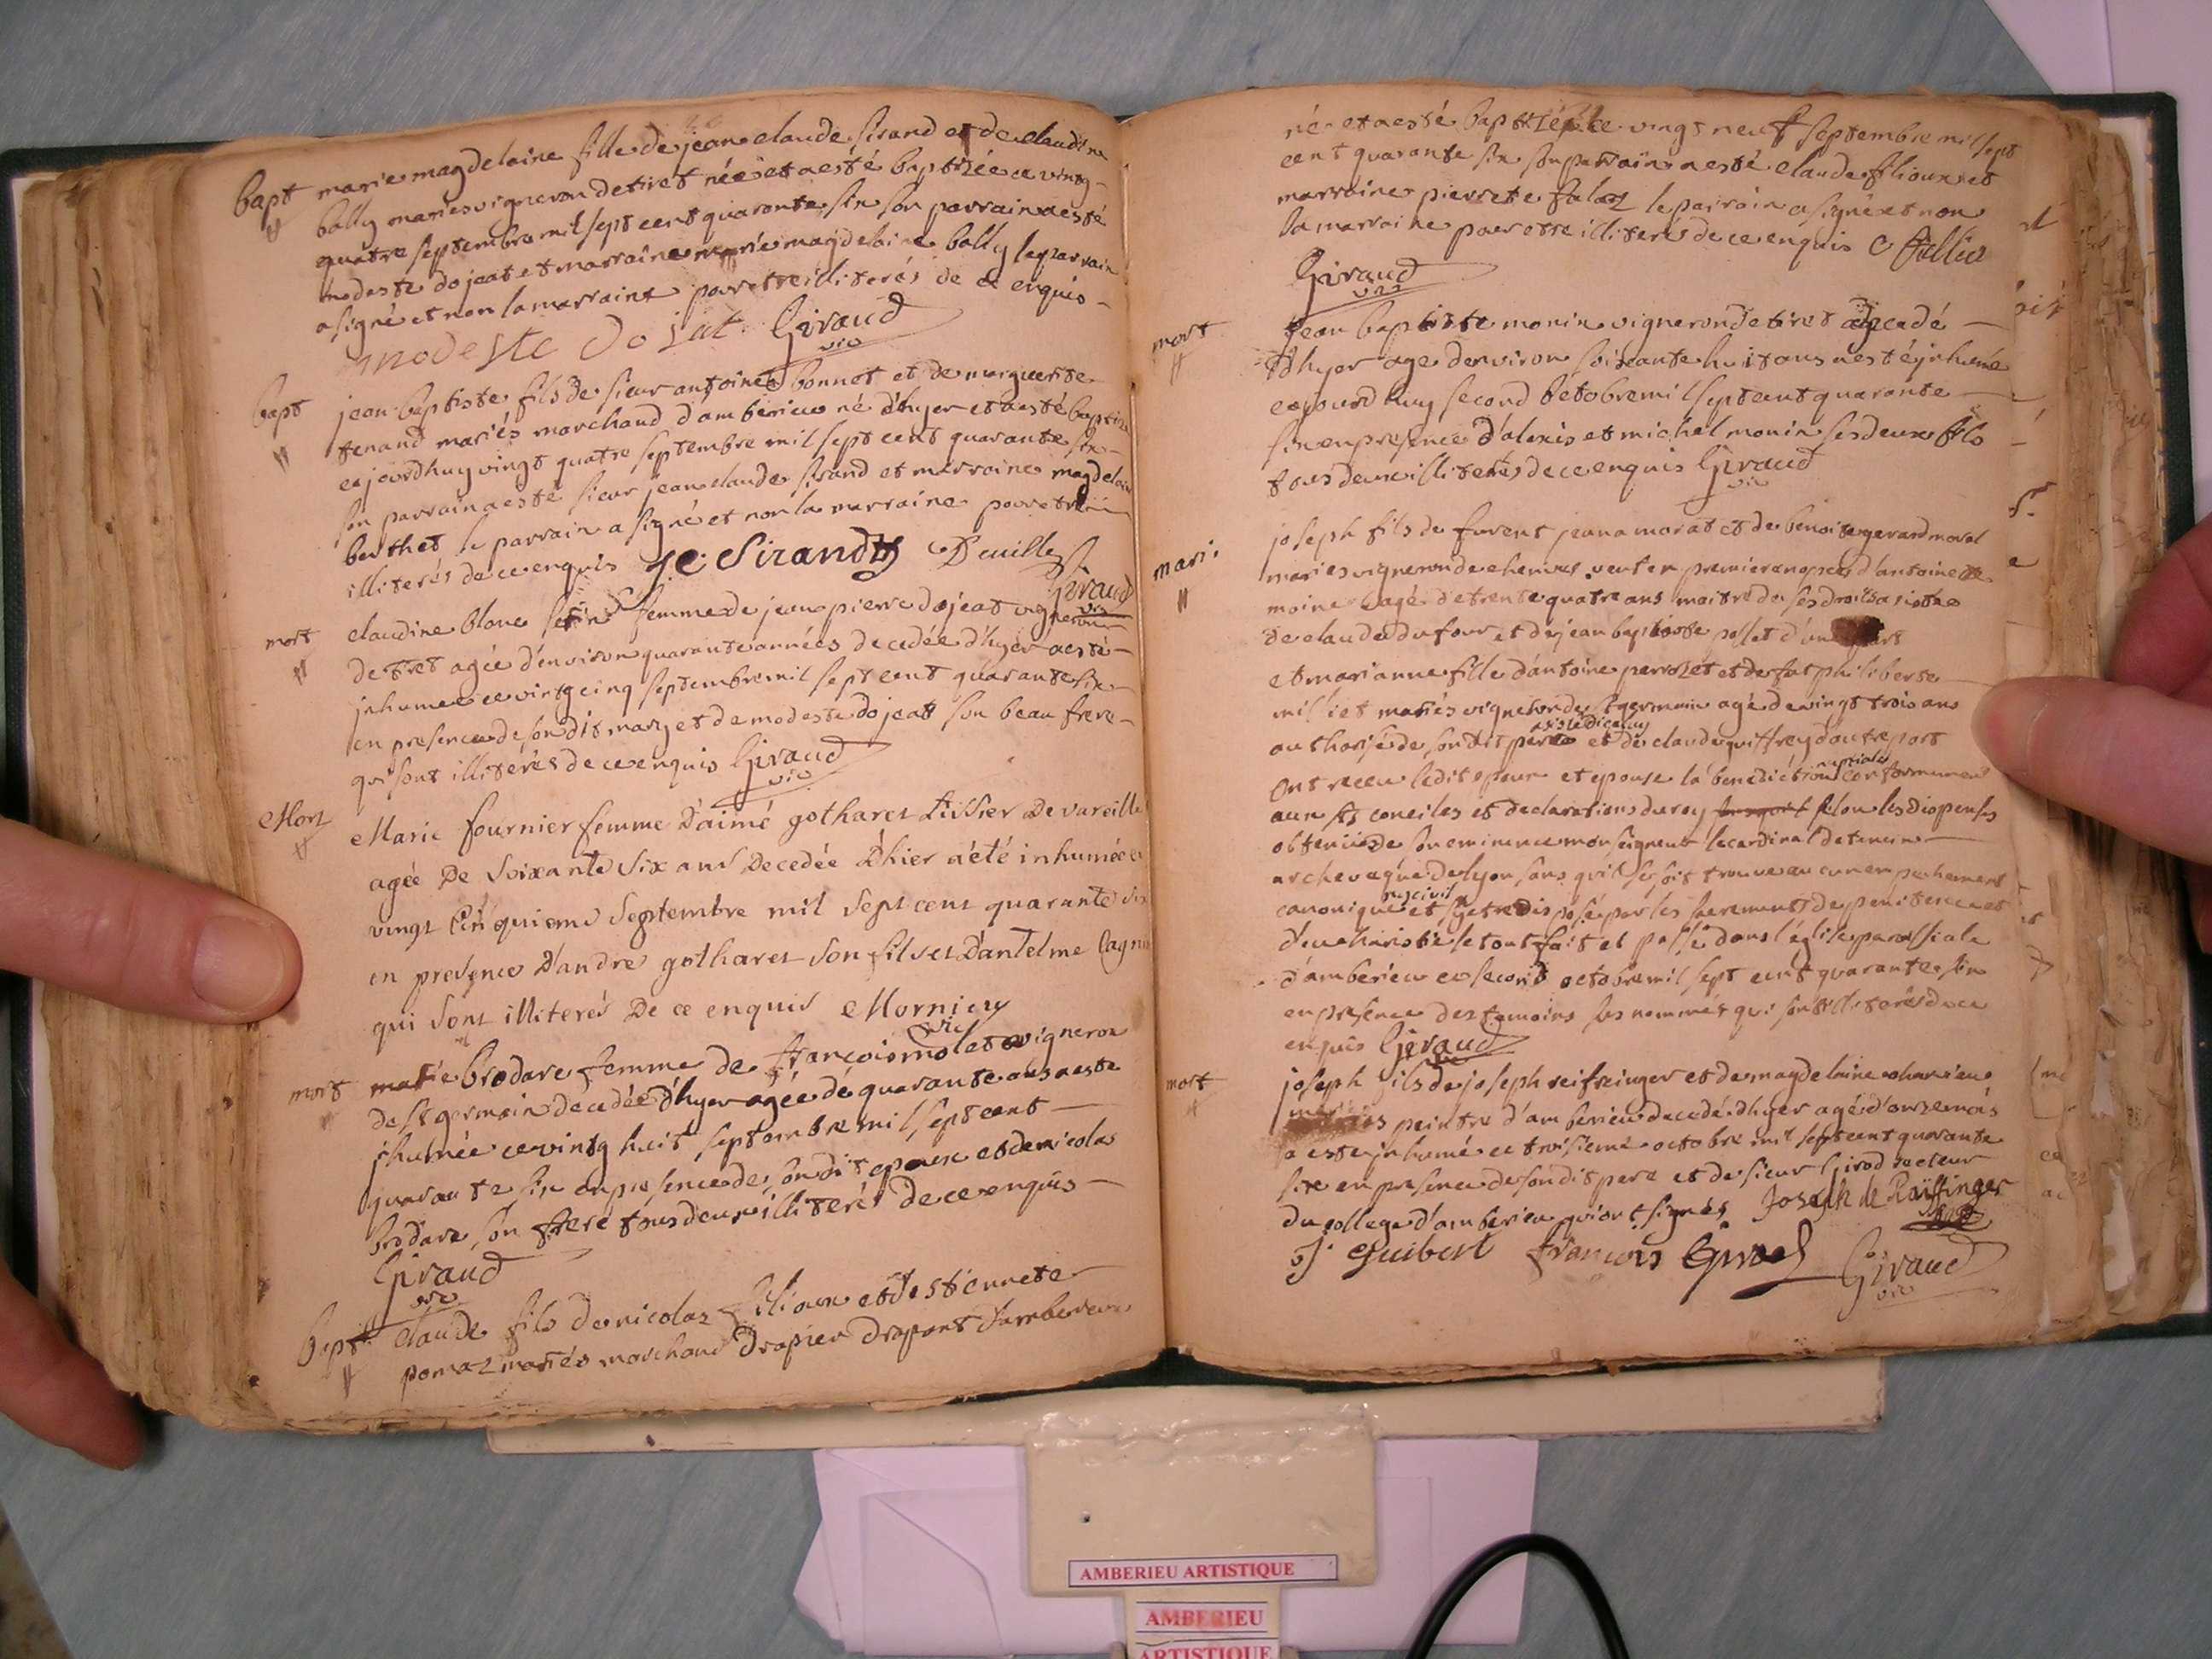 bapt marie magdelaine fille de jean claude sirand et de claudine
bally maries vigneron de tiret née et aesté baptizée ce vingt
quatre septembre mil sept cent quarante six son parrain aesté
modeste dojeat et marraine marie magdelaine bally le parrain
a signé et non la marraine pour etre illiterés de ce enquis
modeste dojat Giraud
vic
bapt jean baptiste fils de sieur antoine bonnet et de marguerite
tenand mariés marchand d'amberieu né d'hyer et aesté baptizé
cejourdhuy vingt quatre septembre mil sept cent quarante six
son parrain aesté sieur jean claude sirand et marraine magdelaine
berthet le parrain a signé et non la marraine pour etre
illiterés de ce enquis JC Sirand
Giraud
vic
mort claudine blanc femme de jean pierre dojeat vigneron
de tiret agée d'environ quarante années decedée d'hyer aesté
inhumée ce vintg cinq septembre mil sept cent quarante six
en presence de son dit mary et de modeste dojeat son beau frere
qui sont illiterés de ce enquis Giraud
vic
Mort Marie fournier femme D'aimé gotharet tissier De vareille
agée De Soixante Six ans Decedée D'hier a été inhumée ce
vingt Cinquieme Septembre mil Sept cent quarante six
en presence D'andre gotharet Son fils et D'antelme
qui sont illiterés De ce enquis Mornieu
vic
mort marie brodare femme de françois molet vigneron
de st germain decedée d'hyer agée de quarante ans aesté
ihumée ce vintg huit septembre mil sept cent
quarante six en presence de son dit epoux et de nicolas
brodare son frere tous deux illiterés de ce enquis
Giraud
vic
bapt claude fils de nicolas filioux et d'estiennete
pomaz mariés marchand drapier drapant d'amberieu
né et aesté baptizé ce vingt neuf septembre mil sept
cent quarante six son parrain aesté claude filioux et
marraine pierrete falaz le parrain a signé et non
la marraine pour etre illiterés de ce enquis C fillio
Giraud
vic
mort jean baptiste monin vigneron de tiret decedé
d'hyer age d'environ soixante huit ans aesté inhumé
cejourdhuy second octobre mil sept cent quarante
six en presence d'alexis et michel monin ses deux fils
tous deux illiterés de ce enquis Giraud
vic
mari joseph fils de furent jean amarat et de benoite gerard moral
maries vigneron de veuf en premiere nopces d'antoinette
moine agé de trente quatre ans maitre de ses droits asisté
de claude dufour et de jean baptiste pollet d'une part
et marianne fille d'antoine perrozet et de fut philiberte
mariés vigneron de st germain agé de vingt trois ans
authorisé de son dit pere et de claude guiffrey d'outre part
nuptiale
ont receu ledit epoux et epouse la benediction conformement
aux sts conciles et declarations du roy selon les dispenses
obtenües de son eminence monseigneur le cardinal de tencin
archeveque de lyon sans qu'il se soit trouvé aucun empechement
ny civil
canonique et s'etre disposé par les sacrements de penitence et
d'eucharistie le tout fait et passé dans l'église parossiale
d'amberieu ce second octobre mil sept cent quarante six
en presence des temoins sus nommés qui sont illiterés de ce
enquis Giraud
vic
mort joseph fils de joseph reifreinger et de magdelaine
mariés peintre d'amberieu decedé d'hyer agé d'onze mois
a esté inhumé ce troisieme octobre mil sept cent quarante
six en presence de son dit pere et de sieur Girod recteur
du college d'amberieu qui ont signés Joseph de Raiffinger
J. Guibert françois Girod Giraud
vic
AMBERIEU ARTISTIQUE
AMBERIEU
ARTISTIQUE